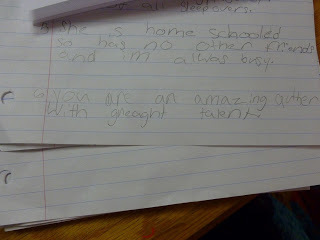 sleepovers.
5 She is home schooled
so has no other friends
and im alwas busy.
6 you are an amazing auther
with greaght talent.